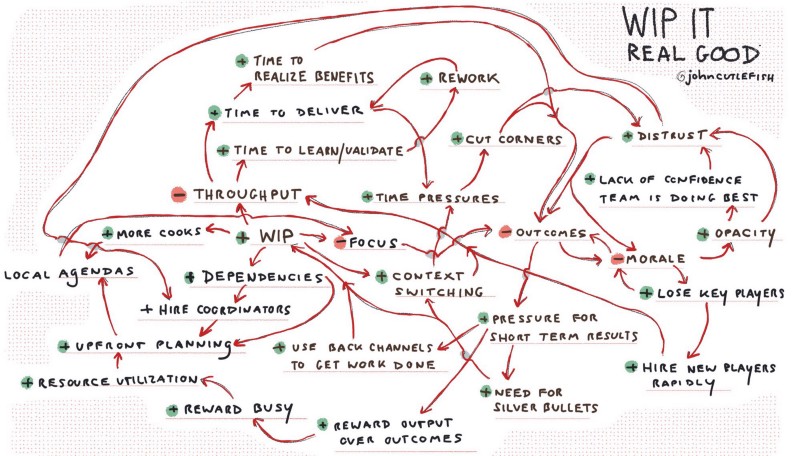 WIP IT
REAL GOOD
@johncutlefish
+ TIME TO
REALIZE BENEFITS
+ REWORK
+ TIME TO DELIVER
+ CUT CORNERS
+ DISTRUST
+ TIME TO LEARN/VALIDATE
+ LACK OF CONFIDENCE
TEAM IS DOING BEST
- THROUGHPUT
+ TIME PRESSURES
+ MORE COOKS
+ WIP
- FOCUS
- OUTCOMES
+ OPACITY
LOCAL AGENDAS
+ DEPENDENCIES
+ CONTEXT
SWITCHING
- MORALE
+ LOSE KEY PLAYERS
+ HIRE COORDINATORS
+ PRESSURE FOR
SHORT TERM RESULTS
+ UPFRONT PLANNING
+ USE BACK CHANNELS
TO GET WORK DONE
+ HIRE NEW PLAYERS
RAPIDLY
+ RESOURCE UTILIZATION
+ NEED FOR
SILVER BULLETS
+ REWARD BUSY
+ REWARD OUTPUT
OVER OUTCOMES